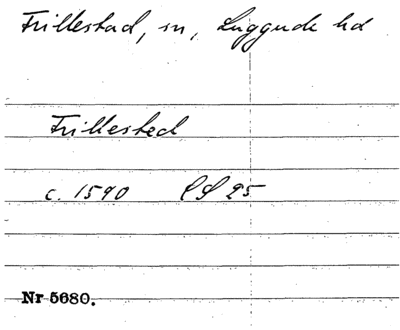 Frillestad, sn, Luggude hd
Frillested
c. 1590 LS 25
Nr 5680.